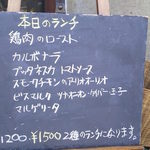 本日のランチ
鶏肉のロースト
カルボナーラ
プッタネスカ トマトソース
スモークチキンのアーリオオーリオ
ビスマルク ツナ・オニオン・ケイパー・玉子
マルゲリータ
1200 ¥1500 2種のランチになります。